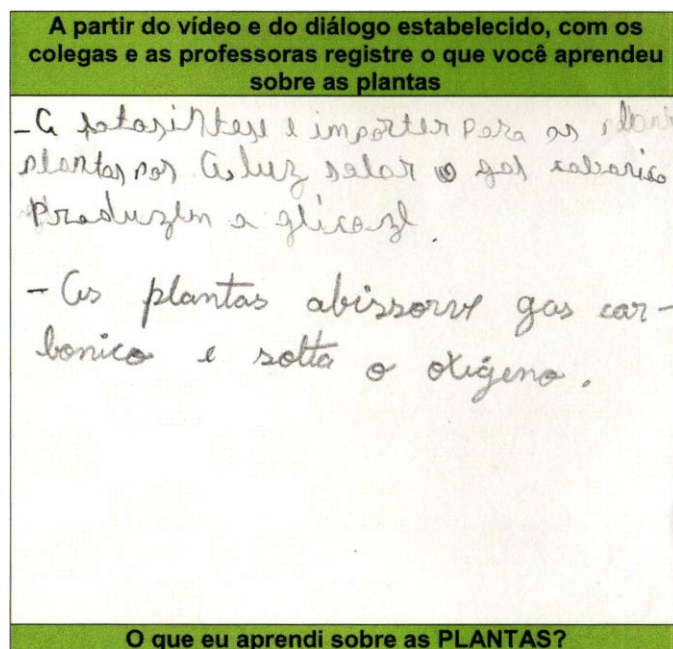 A partir do vídeo e do diálogo estabelecido, com os
colegas e as professoras registre o que você aprendeu
sobre as plantas
- A fotosintese e importer para as plant
plantas pos A luz solar o gas cabonico
Produzem a glicoze.
- As plantas abissorve gas car-
bonico e solta o oxigeno.
O que eu aprendi sobre as PLANTAS?